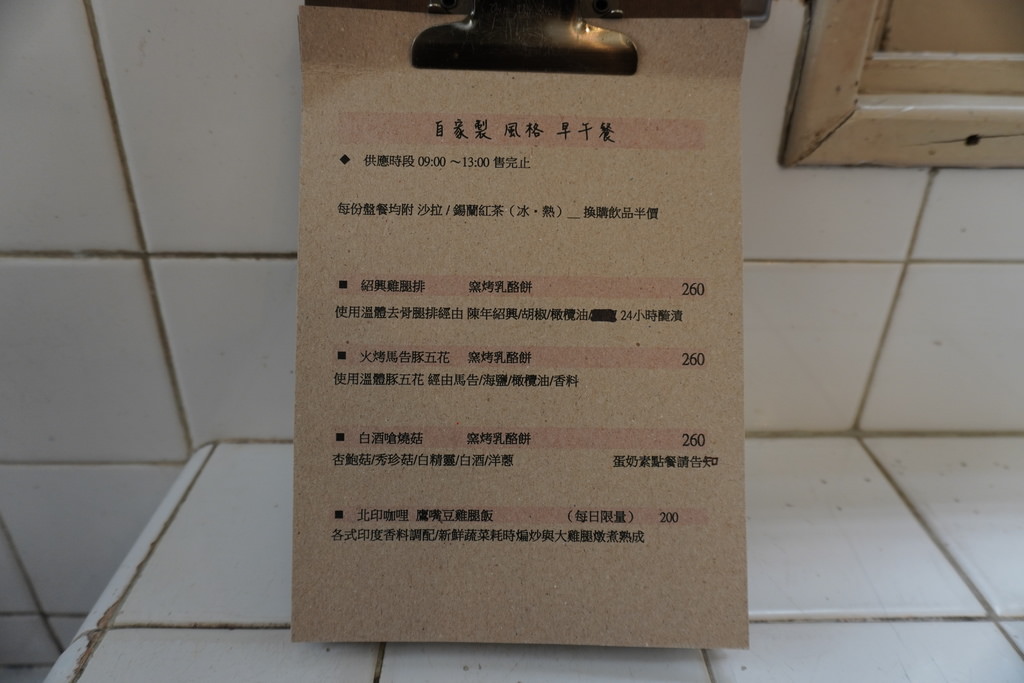 自家製 風格 早午餐
◆ 供應時段 09:00 ～13:00 售完止
每份盤餐均附 沙拉 / 錫蘭紅茶（冰・熱）＿換購飲品半價
■ 紹興雞腿排 窯烤乳酪餅 260
使用溫體去骨腿排經由 陳年紹興/胡椒/橄欖油/ 24小時醃漬
■ 火烤馬告豚五花 窯烤乳酪餅 260
使用溫體豚五花 經由馬告/海鹽/橄欖油/香料
■ 白酒嗆燒菇 窯烤乳酪餅 260
杏鮑菇/秀珍菇/白精靈/白酒/洋蔥 蛋奶素點餐請告知
■ 北印咖哩 鷹嘴豆雞腿飯 （每日限量） 200
各式印度香料調配/新鮮蔬菜耗時煸炒與大雞腿燉煮熟成